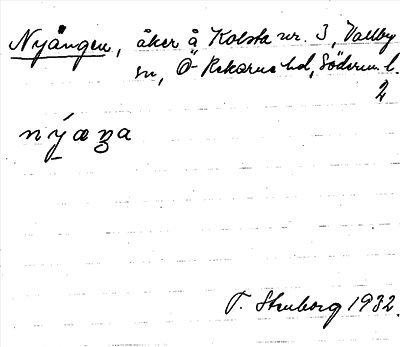 Nyängen, åker å Kolsta nr. 3, Vallby
sn, Ö. Rekarne hd, Söderm. l.
2
T. Stenborg 1932.